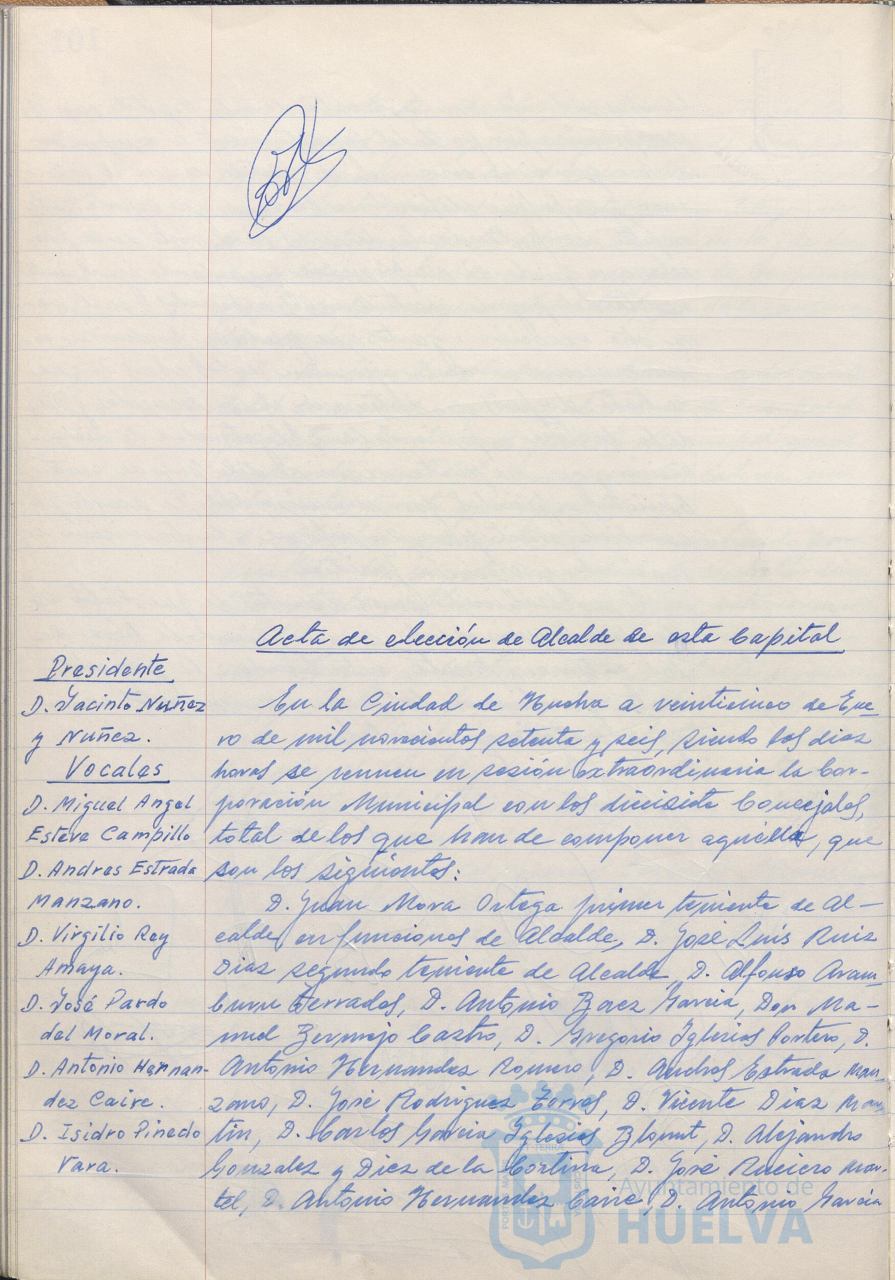 Acta de elección de Alcalde de esta Capital
Presidente
D. Jacinto Nuñez
y Nuñez.
Vocales
D. Miguel Angel
Esteve Campillo
D. Andres Estrada
Manzano.
D. Virgilio Rey
Amaya.
D. José Pardo
del Moral.
D. Antonio Hernan-
dez Caire.
D. Isidro Pinedo
Vara.
En la Ciudad de Huelva a veinticinco de Ene-
ro de mil novecientos setenta y seis, siendo las diez
horas se reunen en sesión extraordinaria la Cor-
poración Municipal con los diecisiete Concejales,
total de los que han de componer aquélla, que
son los siguientes:
D. Juan Mora Ortega primer teniente de Al-
calde, en funciones de Alcalde, D. José Luis Ruiz
Diaz segundo teniente de Alcalde, D. Alfonso Aram-
buru Terrados, D. Antonio Garcia, Don Ma-
nuel Bermejo Castro, D. Gregorio Iglesias Portero, D.
Antonio Hernandez Romero, D. Andres Estrada Man-
zano, D. José Rodriguez D. Vicente Diaz Mar-
tin, D. Carlos Garcia Iglesias D. Alejandro
Gonzalez y Diez de la Cortina, D. José Mar-
tel, D. Antonio Hernandez Caire, D. Antonio Garcia
Ayuntamiento de
HUELVA